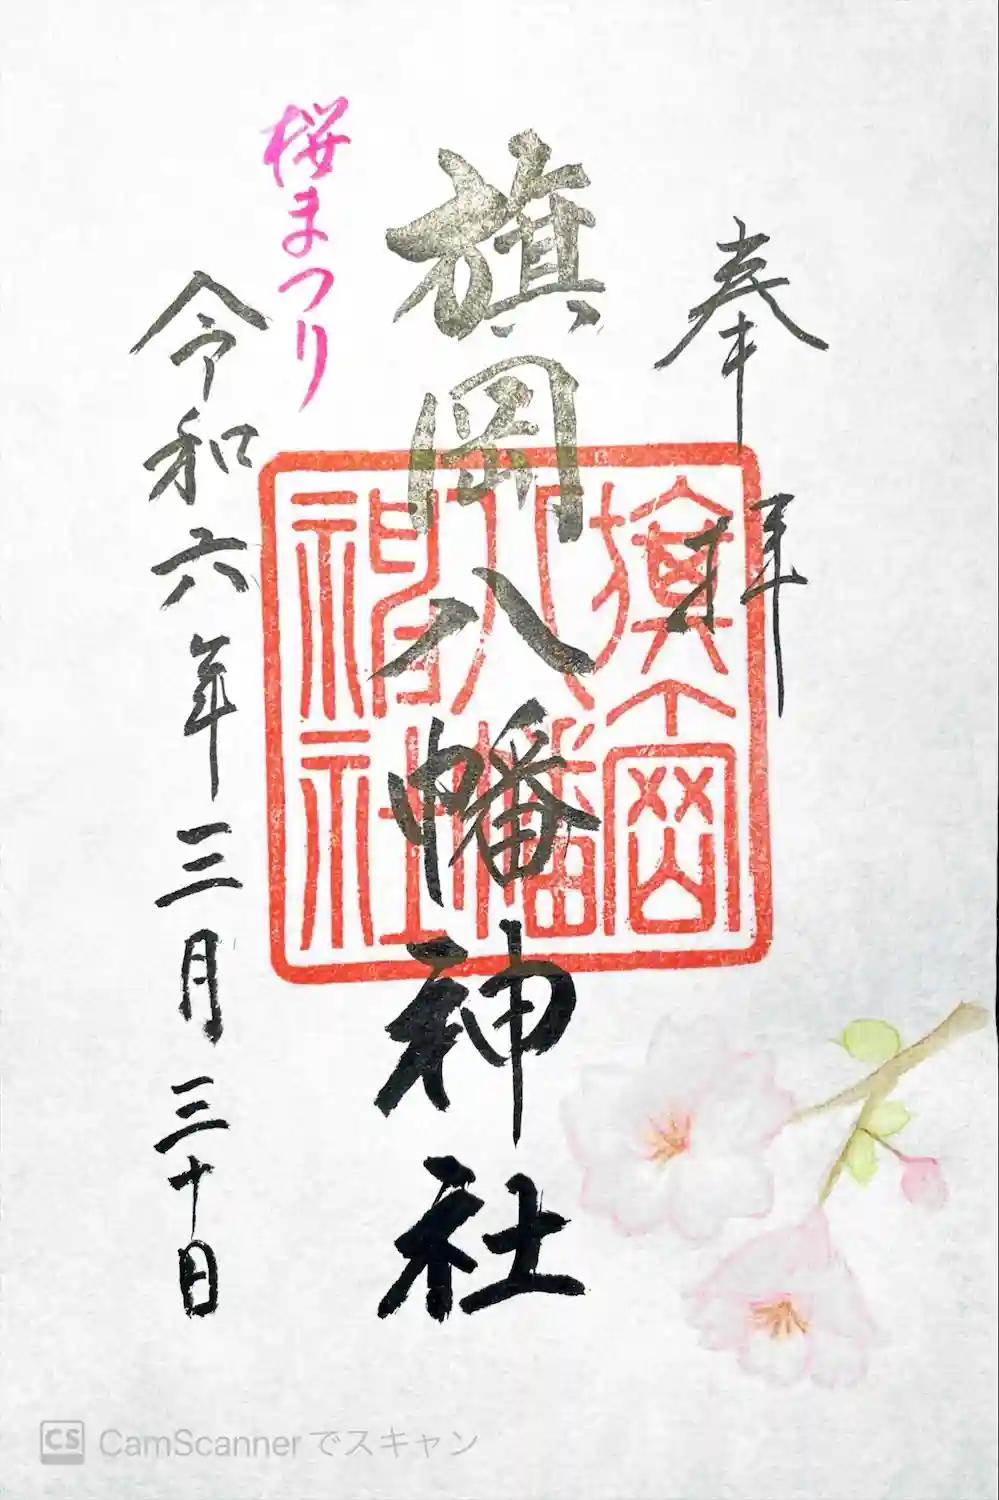 奉拝
旗岡八幡神社
旗岡
八幡
神社
桜まつり
令和六年三月三十日
CS CamScannerでスキャン